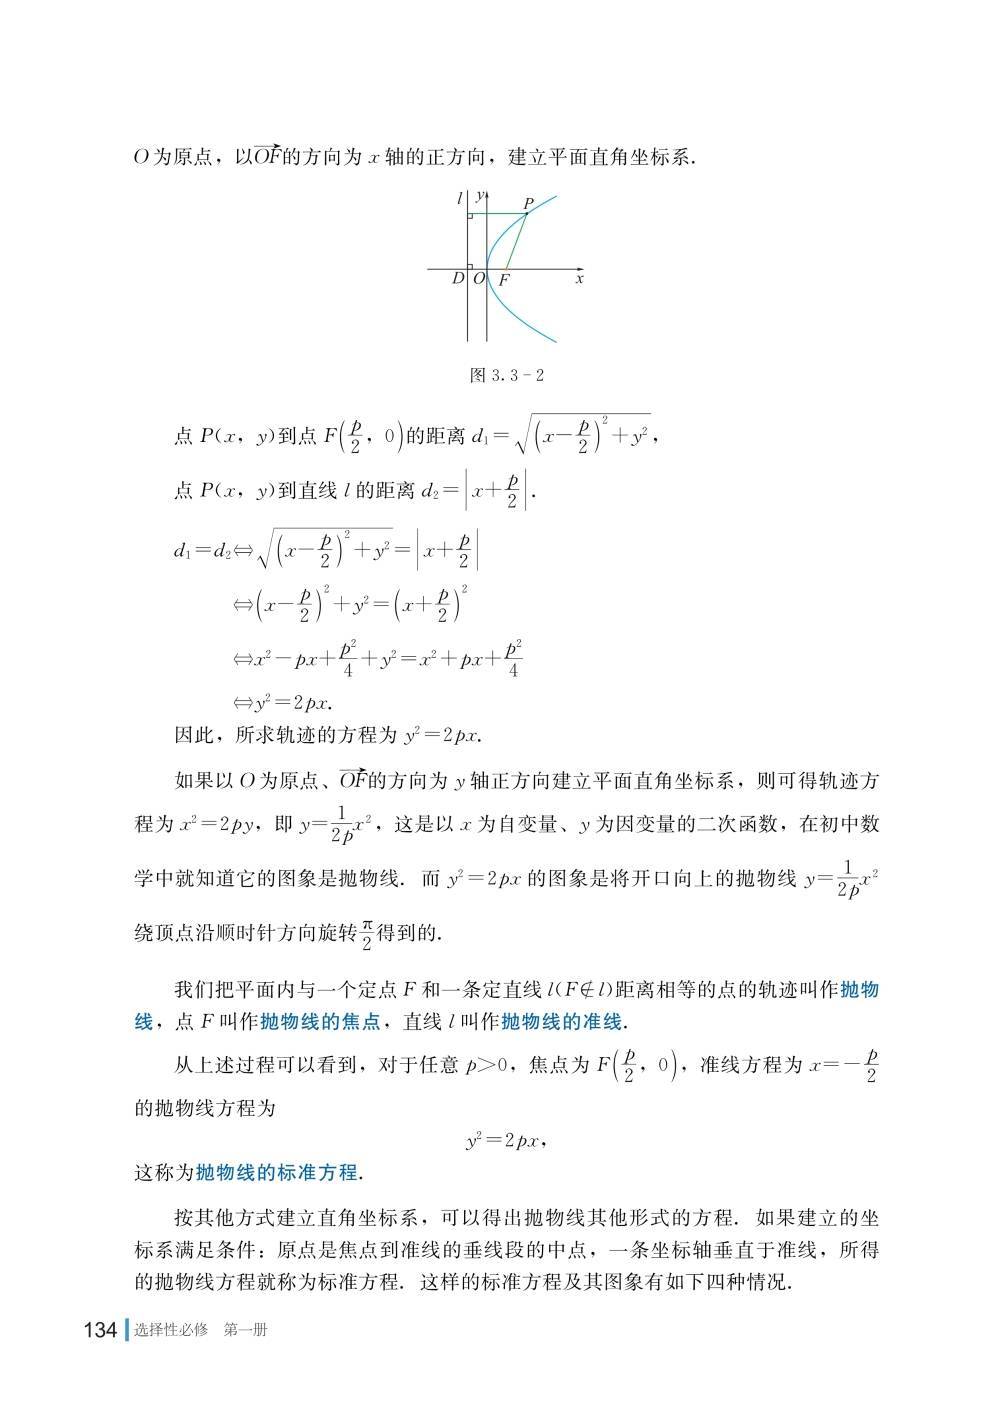 O为原点，以$\overrightarrow{OF}$的方向为 x 轴的正方向，建立平面直角坐标系.
l y P
D O F x
图 3.3-2
点 P(x，y)到点 $F\left(\frac{p}{2}，0\right)$的距离 $d_1=\sqrt{\left(x-\frac{p}{2}\right)^2+y^2}$，
点 P(x，y)到直线 l 的距离 $d_2=\left|x+\frac{p}{2}\right|$.
$d_1=d_2⇔\sqrt{\left(x-\frac{p}{2}\right)^2+y^2}=\left|x+\frac{p}{2}\right|$
$⇔\left(x-\frac{p}{2}\right)^2+y^2=\left(x+\frac{p}{2}\right)^2$
$⇔x^2-px+\frac{p^2}{4}+y^2=x^2+px+\frac{p^2}{4}$
$⇔y^2=2px$.
因此，所求轨迹的方程为 $y^2=2px$.
如果以 O 为原点、$\overrightarrow{OF}$的方向为 y 轴正方向建立平面直角坐标系，则可得轨迹方
程为 $x^2=2py$，即 $y=\frac{1}{2p}x^2$，这是以 x 为自变量、y 为因变量的二次函数，在初中数
学中就知道它的图象是抛物线. 而 $y^2=2px$ 的图象是将开口向上的抛物线 $y=\frac{1}{2p}x^2$
绕顶点沿顺时针方向旋转$\frac{π}{2}$得到的.
我们把平面内与一个定点 F 和一条定直线 l(F∉l)距离相等的点的轨迹叫作抛物
线，点 F 叫作抛物线的焦点，直线 l 叫作抛物线的准线.
从上述过程可以看到，对于任意 p>0，焦点为 $F\left(\frac{p}{2}，0\right)$，准线方程为 $x=-\frac{p}{2}$
的抛物线方程为
$y^2=2px$，
这称为抛物线的标准方程.
按其他方式建立直角坐标系，可以得出抛物线其他形式的方程. 如果建立的坐
标系满足条件：原点是焦点到准线的垂线段的中点，一条坐标轴垂直于准线，所得
的抛物线方程就称为标准方程. 这样的标准方程及其图象有如下四种情况.
134 选择性必修 第一册